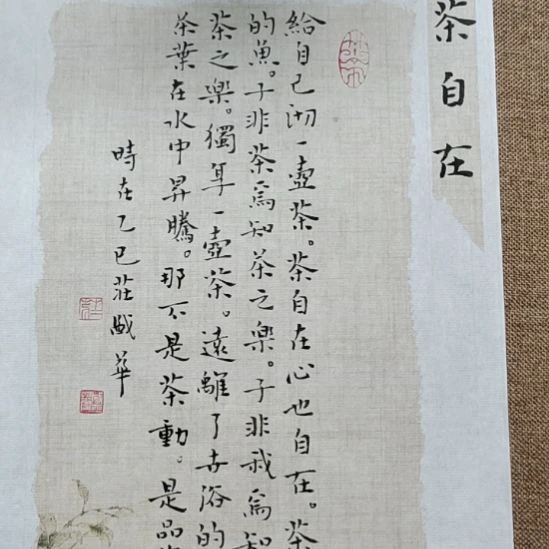 茶自在
給自己沏一壺茶。茶自在心也自在。茶
的魚。子非茶焉知茶之樂。子非我焉知
茶之樂。獨享一壺茶。遠離了去俗的
茶葉在水中昇騰。那不是茶動。是品
時在乙巳莊戲華